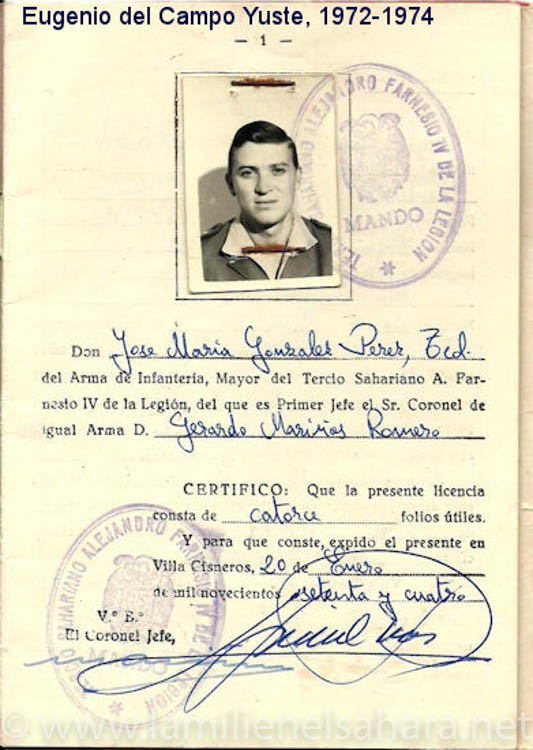 Eugenio del Campo Yuste, 1972-1974
— 1 —
TERCIO SAHARIANO ALEJANDRO FARNESIO IV DE LA LEGION
MANDO
Don Jose Maria Gonzales Perez, Tcol.
del Arma de Infantería, Mayor del Tercio Sahariano A. Far-
nesio IV de la Legión, del que es Primer Jefe el Sr. Coronel de
igual Arma D. Gerardo Mariños Romero
CERTIFICO: Que la presente licencia
consta de catorce folios útiles.
Y para que conste, expido el presente en
Villa Cisneros, 20 de Enero
de mil novecientos setenta y cuatro
V.º B.º
El Coronel Jefe,
TERCIO SAHARIANO ALEJANDRO FARNESIO IV DE LA LEGION
MANDO
© www.lamilienelsahara.net